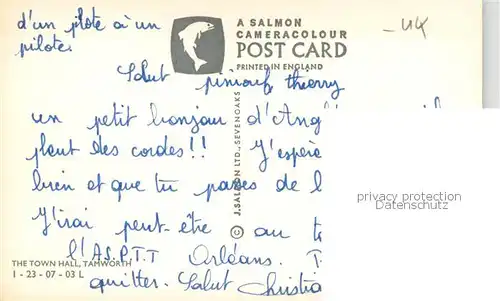 d'un pilote à un
pilote.
A SALMON
CAMERACOLOUR
POST CARD
PRINTED IN ENGLAND
UK
Salut thierry
un petit bonjour d'Ang
pleut des cordes!! J'espère
bien et que tu passes de
J'irai peut-être au
l'A.S.P.T.T Orléans.
quitter. Salut Christia
© J. SALMON LTD., SEVENOAKS
THE TOWN HALL, TAMWORTH
1 - 23 - 07 - 03 L
privacy protection
Datenschutz